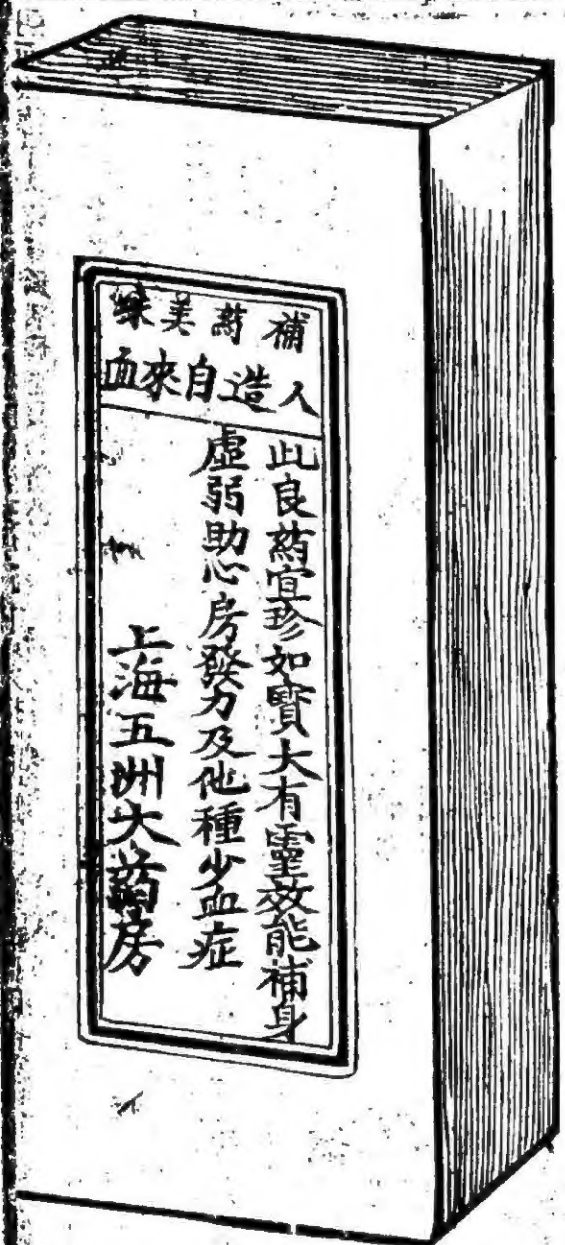 補葯美味
人造自來血
此良葯宜珍如寶大有靈效能補身
虛弱助心房發力及他種少血症
上海五洲大葯房